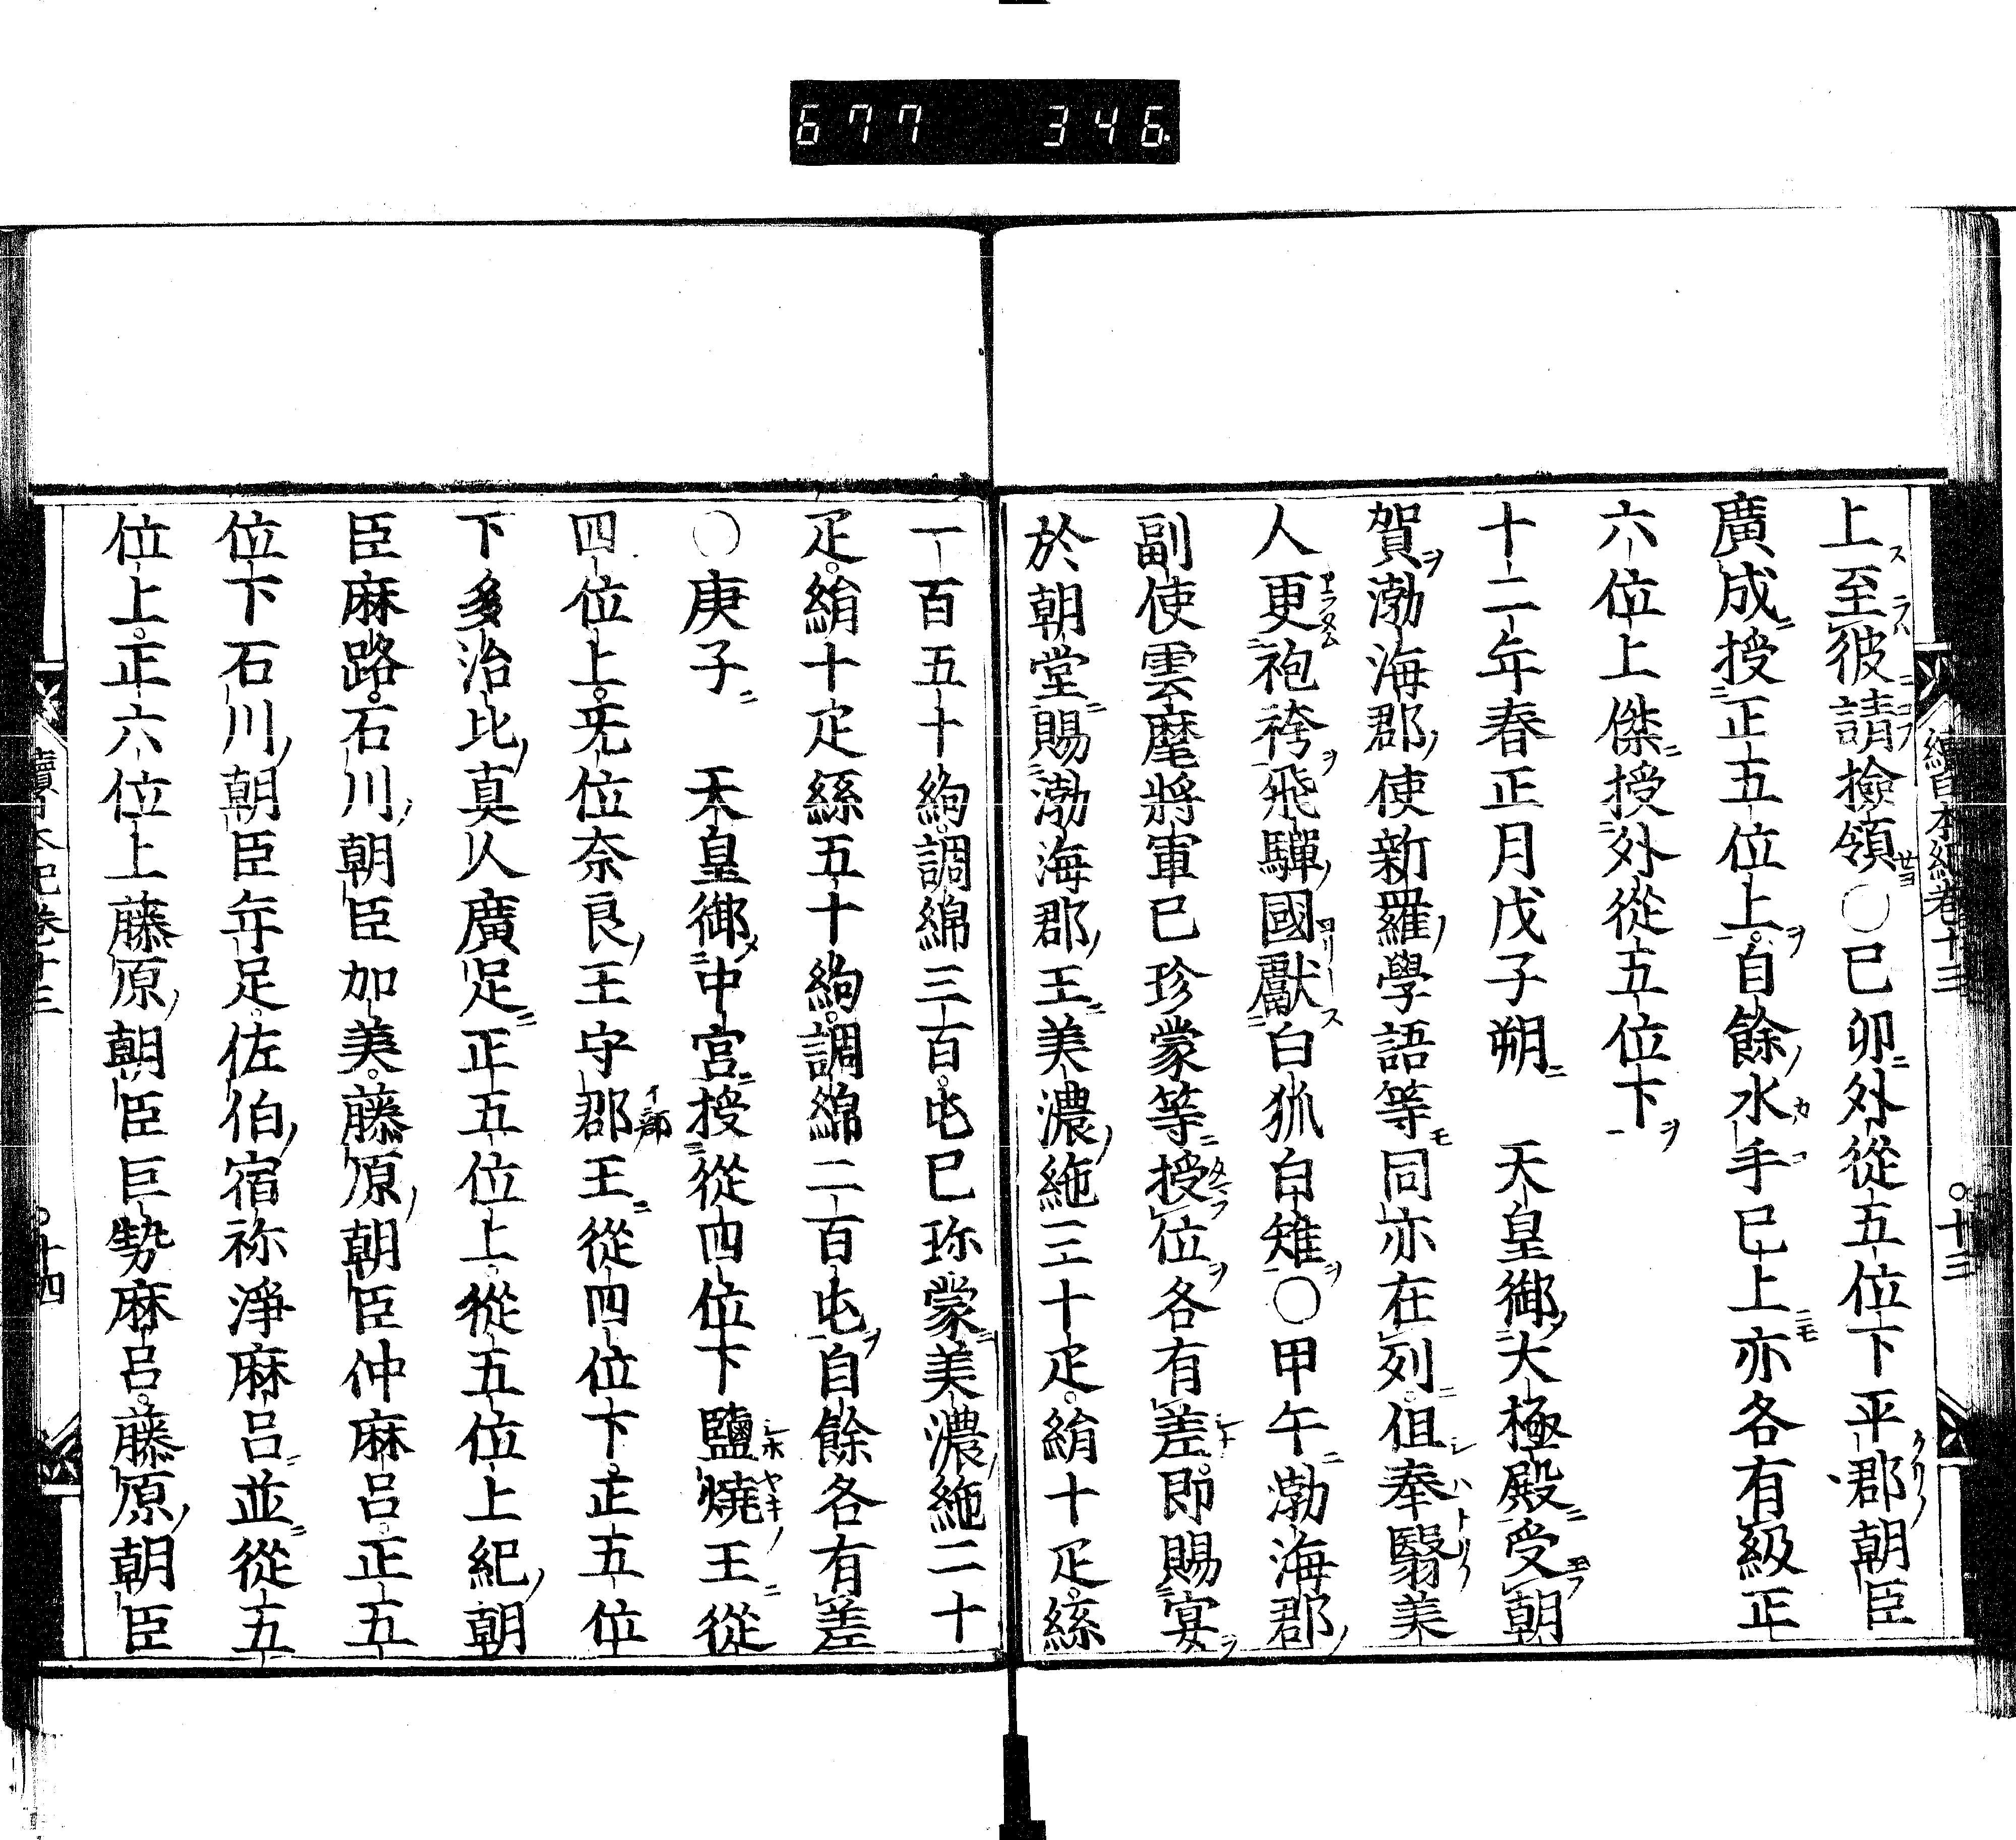 677 346.
續日本紀卷十三
十三
上至彼請檢領○巳卯外從五位下平郡朝臣
廣成授正五位上自餘水手巳上亦各有級正
六位上傑授外從五位下
十二年春正月戊子朔 天皇御大極殿受朝
賀渤海郡使新羅學語等同亦在列但奉翳美
人更袍袴飛驒國獻白狐白雉○甲午渤海郡
副使雲麾將軍巳珍蒙等授位各有差即賜宴
於朝堂賜渤海郡王美濃絁三十疋絹十疋絲
一百五十絇調綿三百屯巳珎蒙美濃絁二十
疋絹十疋絲五十絇調綿二百屯自餘各有差
○庚子 天皇御中宮授從四位下鹽燒王從
四位上无位奈良王守郡王從四位下正五位
下多治比真人廣足正五位上從五位上紀朝
臣麻路石川朝臣加美藤原朝臣仲麻呂正五
位下石川朝臣年足佐伯宿祢淨麻呂並從五
位上正六位上藤原朝臣巨勢麻呂藤原朝臣
續日本紀卷十三
十四